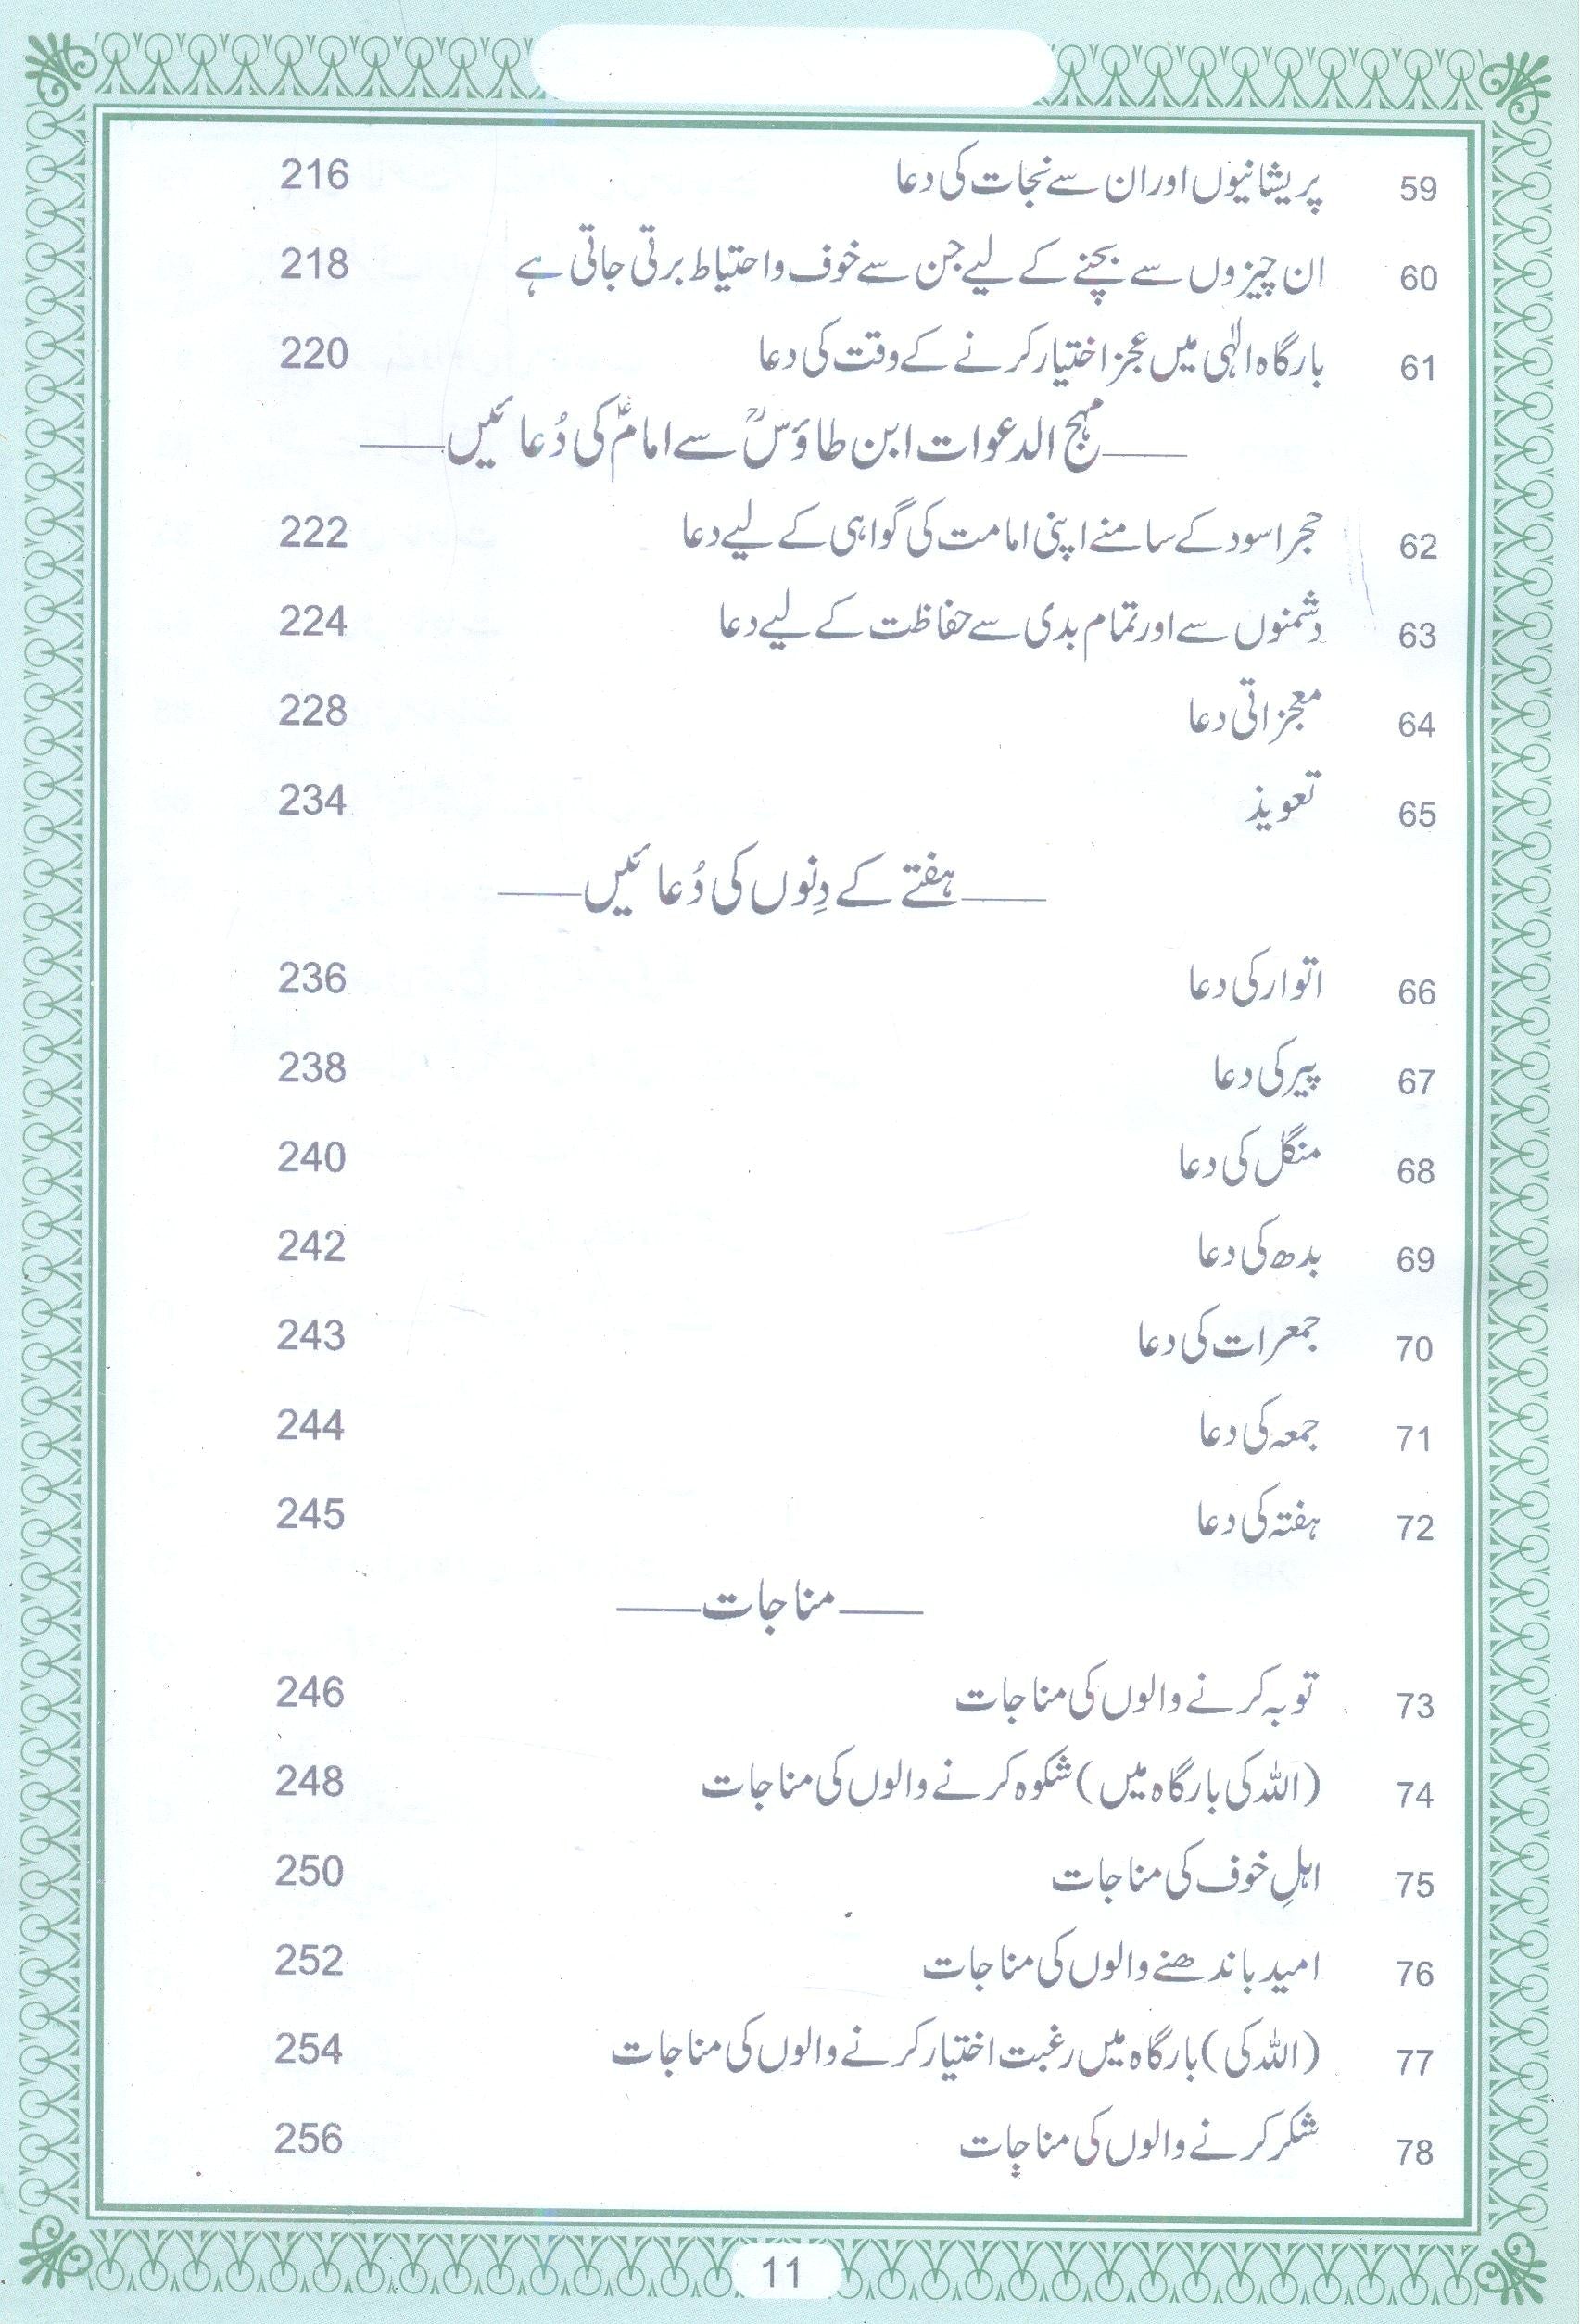 59 پریشانیوں اور ان سے نجات کی دعا 216
60 ان چیزوں سے بچنے کے لیے جن سے خوف و احتیاط برتی جاتی ہے 218
61 بارگاہ الٰہی میں عجز اختیار کرنے کے وقت کی دعا 220
مہج الدعوات ابن طاؤسؒ سے امامؑ کی دُعائیں
62 حجر اسود کے سامنے اپنی امامت کی گواہی کے لیے دعا 222
63 دشمنوں سے اور تمام بدی سے حفاظت کے لیے دعا 224
64 معجزاتی دعا 228
65 تعویذ 234
ہفتے کے دِنوں کی دُعائیں
66 اتوار کی دعا 236
67 پیر کی دعا 238
68 منگل کی دعا 240
69 بدھ کی دعا 242
70 جمعرات کی دعا 243
71 جمعہ کی دعا 244
72 ہفتہ کی دعا 245
مناجات
73 توبہ کرنے والوں کی مناجات 246
74 (اللہ کی بارگاہ میں) شکوہ کرنے والوں کی مناجات 248
75 اہلِ خوف کی مناجات 250
76 امید باندھنے والوں کی مناجات 252
77 (اللہ کی) بارگاہ میں رغبت اختیار کرنے والوں کی مناجات 254
78 شکر کرنے والوں کی مناجات 256
11